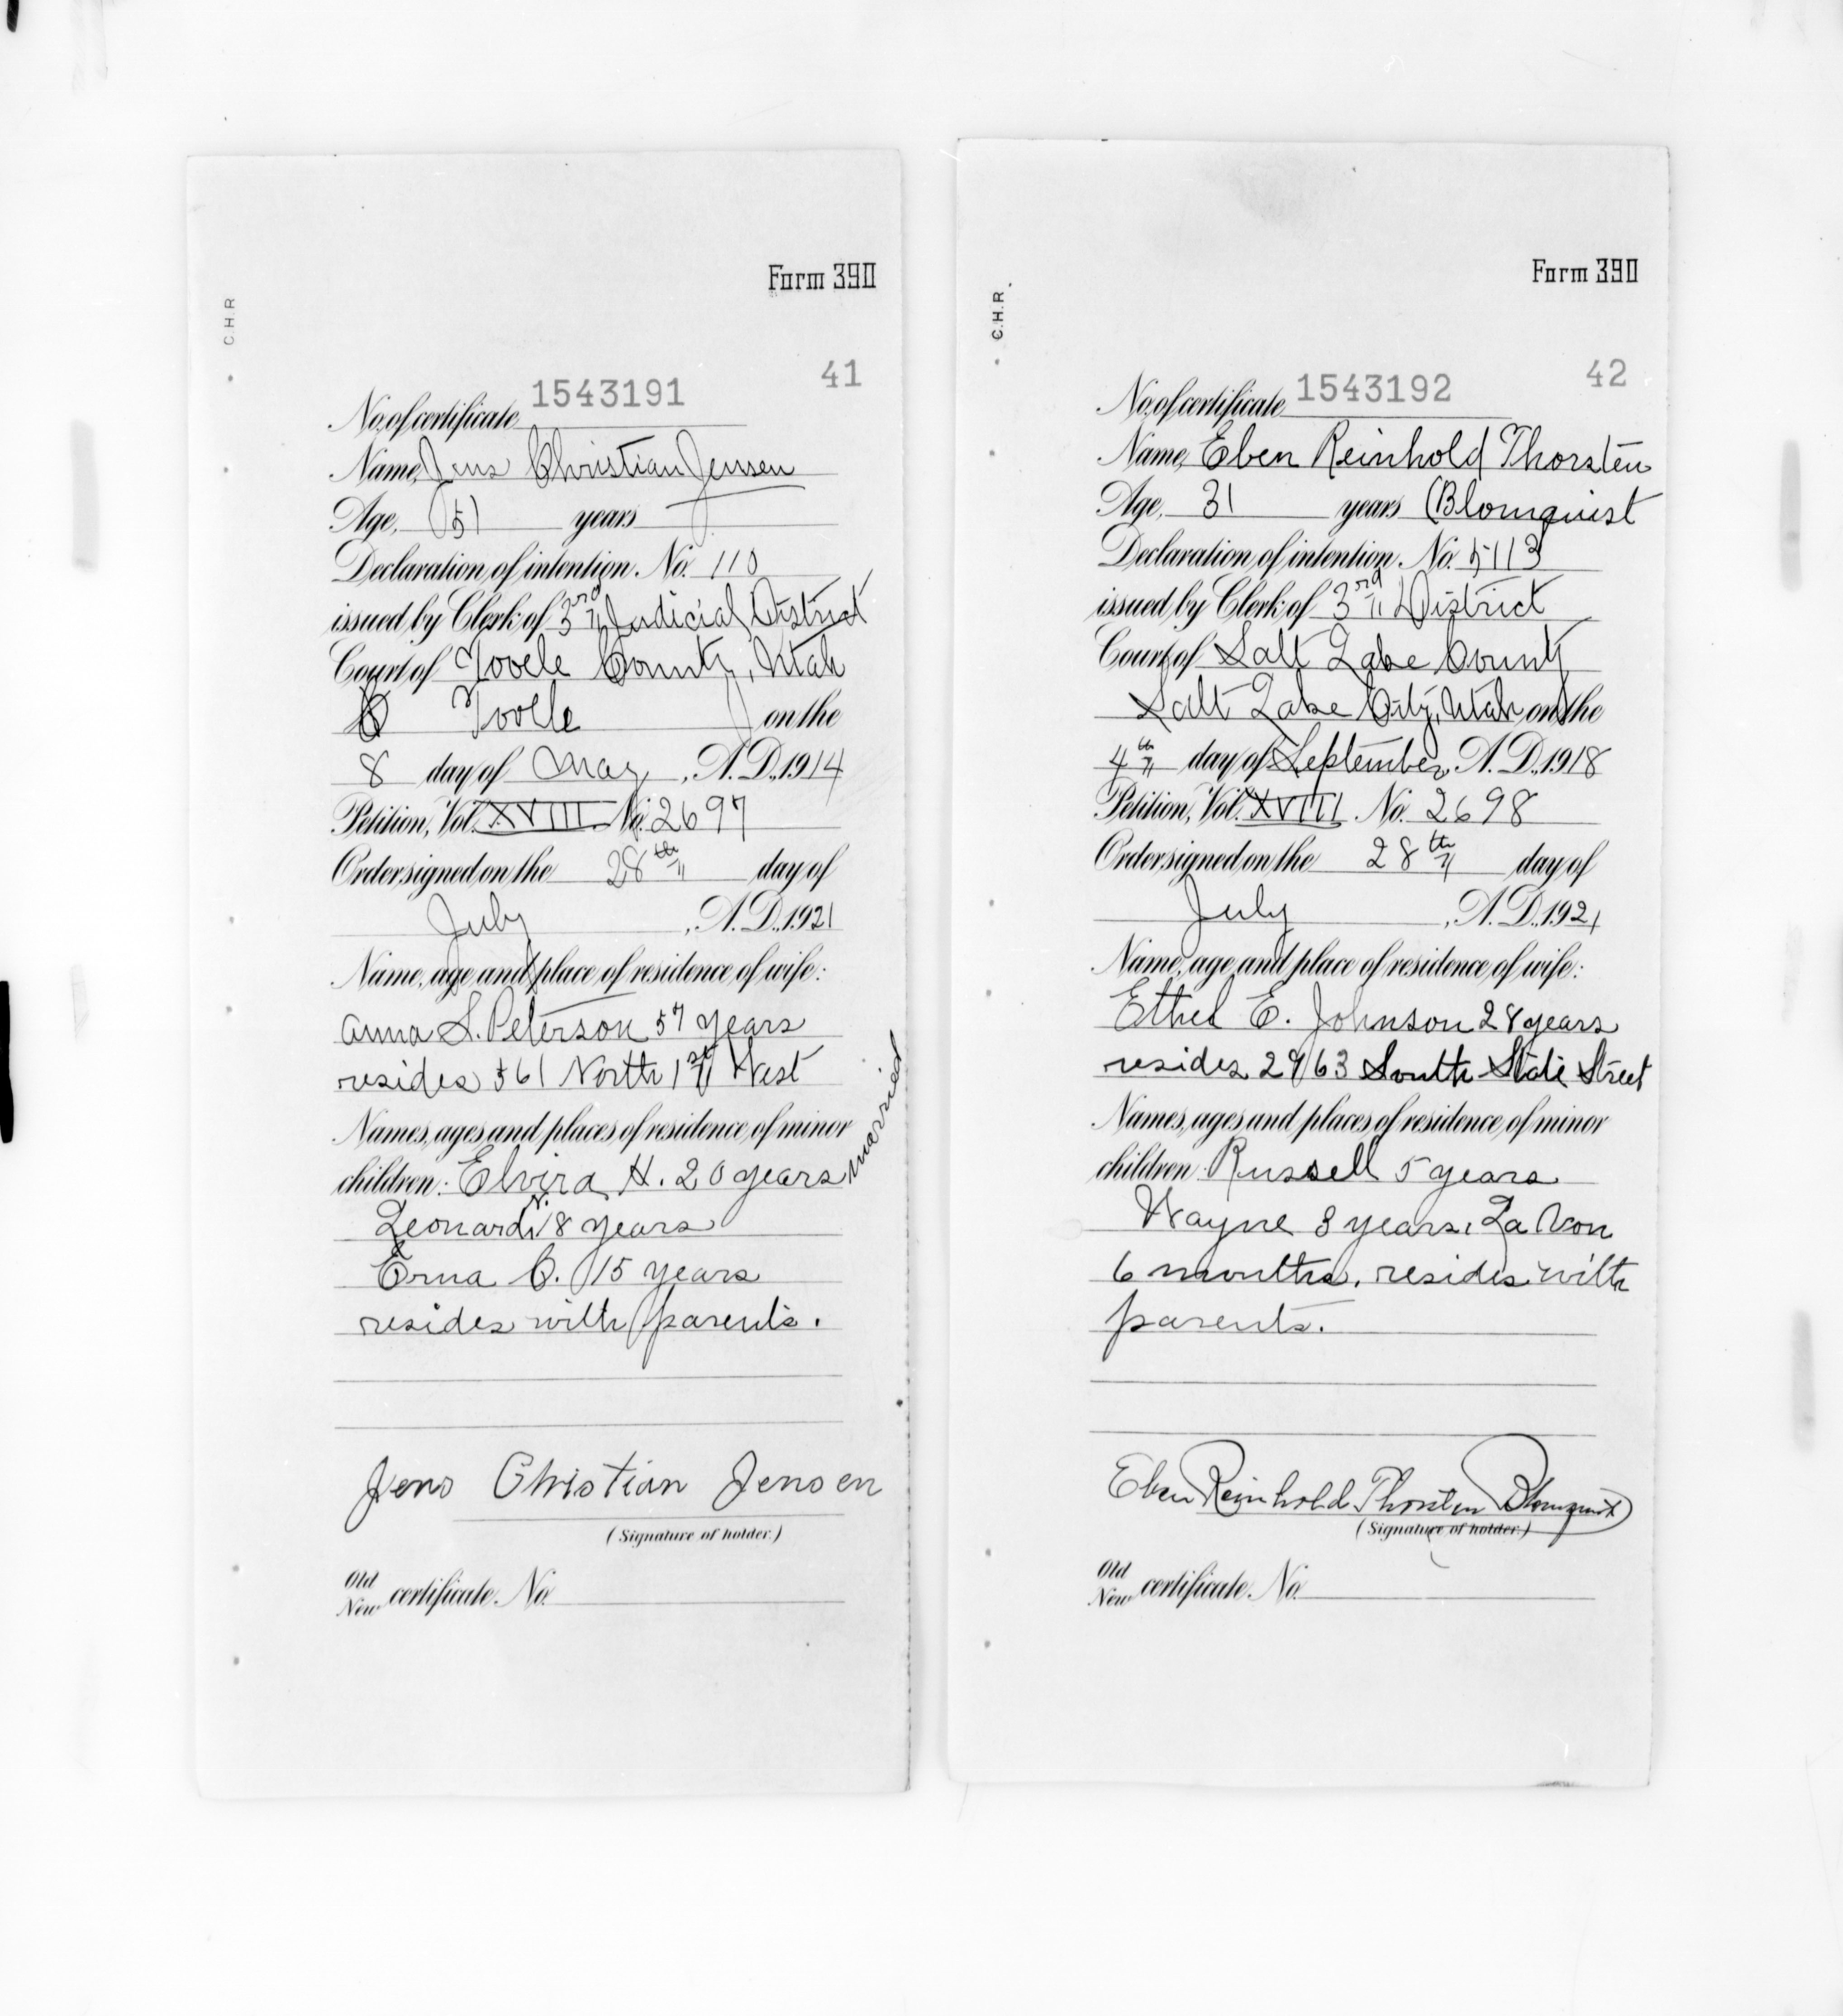 Form 390
C.H.R
41
No. of certificate 1543191
Name, Jens Christian Jensen
Age, 51 years
Declaration of intention. No. 110
issued by Clerk of 3rd Judicial District
Court of Tooele County, Utah
Tooele on the
8 day of May, A.D., 1914
Petition, Vol. XVIII No. 2697
Order signed on the 28th day of
July, A.D., 1921
Name, age and place of residence of wife:
Anna S. Peterson 57 years
resides 561 North 1st West
Names, ages and places of residence of minor
children: Elvira H. 20 years married
Leonard N. 18 years
Erna C. 15 years
resides with parents.
Jens Christian Jensen
(Signature of holder.)
Old
New certificate. No.
Form 390
C.H.R.
42
No. of certificate 1543192
Name, Eben Reinhold Thorsten
Age, 31 years (Blomquist
Declaration of intention. No. 5113
issued by Clerk of 3rd District
Court of Salt Lake County
Salt Lake City, Utah on the
4th day of September, A.D., 1918
Petition, Vol. XVIII No. 2698
Order signed on the 28th day of
July, A.D., 1921
Name, age and place of residence of wife:
Ethel E. Johnson 28 years
resides 2963 South State Street
Names, ages and places of residence of minor
children: Russell 5 years
Wayne 3 years, La Von
6 months, resides with
parents.
Eben Reinhold Thorsten Blomquist
(Signature of holder.)
Old
New certificate. No.